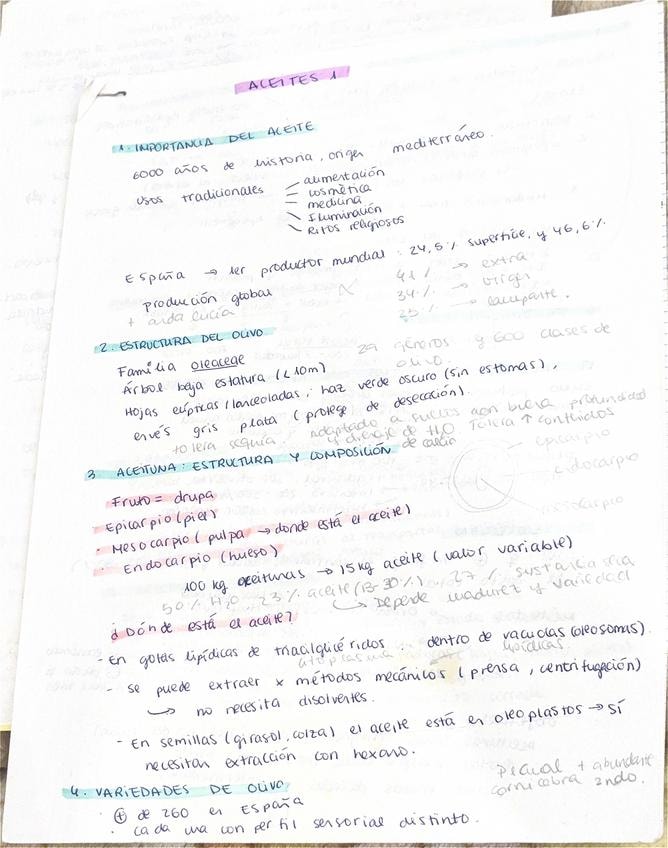 ACEITES 1
1. IMPORTANCIA DEL ACEITE
6000 años de historia, origen mediterráneo.
usos tradicionales
alimentación
cosmética
medicina
Iluminación
Ritos religiosos
España → 1er productor mundial: 24,5% superficie, y 46,6%
producción global
41% → extra
34% → virgen
25% → lampante.
+ andalucía
2. ESTRUCTURA DEL OLIVO
Familia oleaceae
29 géneros y 600 clases de
olivo.
Árbol baja estatura (<10m)
Hojas elípticas/lanceoladas; haz verde oscuro (sin estomas),
envés gris plata (protege de desecación).
tolera sequía. Adaptado a suelos con buena profundidad
y drenaje de H2O Tolera ↑ contenidos
de calcio
3 ACEITUNA: ESTRUCTURA Y COMPOSICIÓN
epicarpio
endocarpio
mesocarpio
Fruto = drupa
· Epicarpio (piel)
· Mesocarpio (pulpa → donde está el aceite)
· Endocarpio (hueso)
100 kg aceitunas → 15kg aceite (valor variable)
50% H2O 23% aceite (13-30%) 27% sustancia seca
↳ Depende madurez y variedad
¿Dónde está el aceite?
- En gotas lipídicas de triacilglicéridos: dentro de vacuolas (oleosomas).
citoplasma
lipídicas.
- se puede extraer x métodos mecánicos (prensa, centrifugación)
↳ no necesita disolventes.
- En semillas (girasol, colza) el aceite está en oleoplastos → sí
necesitan extracción con hexano.
4. VARIEDADES DE OLIVO
picual + abundante
cornicabra 2ndo.
· ⊕ de 260 en España
· cada una con perfil sensorial distinto.